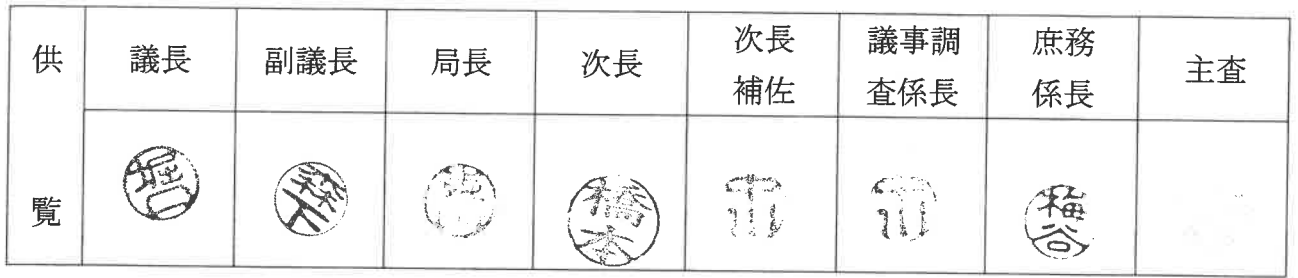 供覧
議長
副議長
局長
次長
次長
補佐
議事調
査係長
庶務
係長
主査
堀口
森下
橋本
梅谷